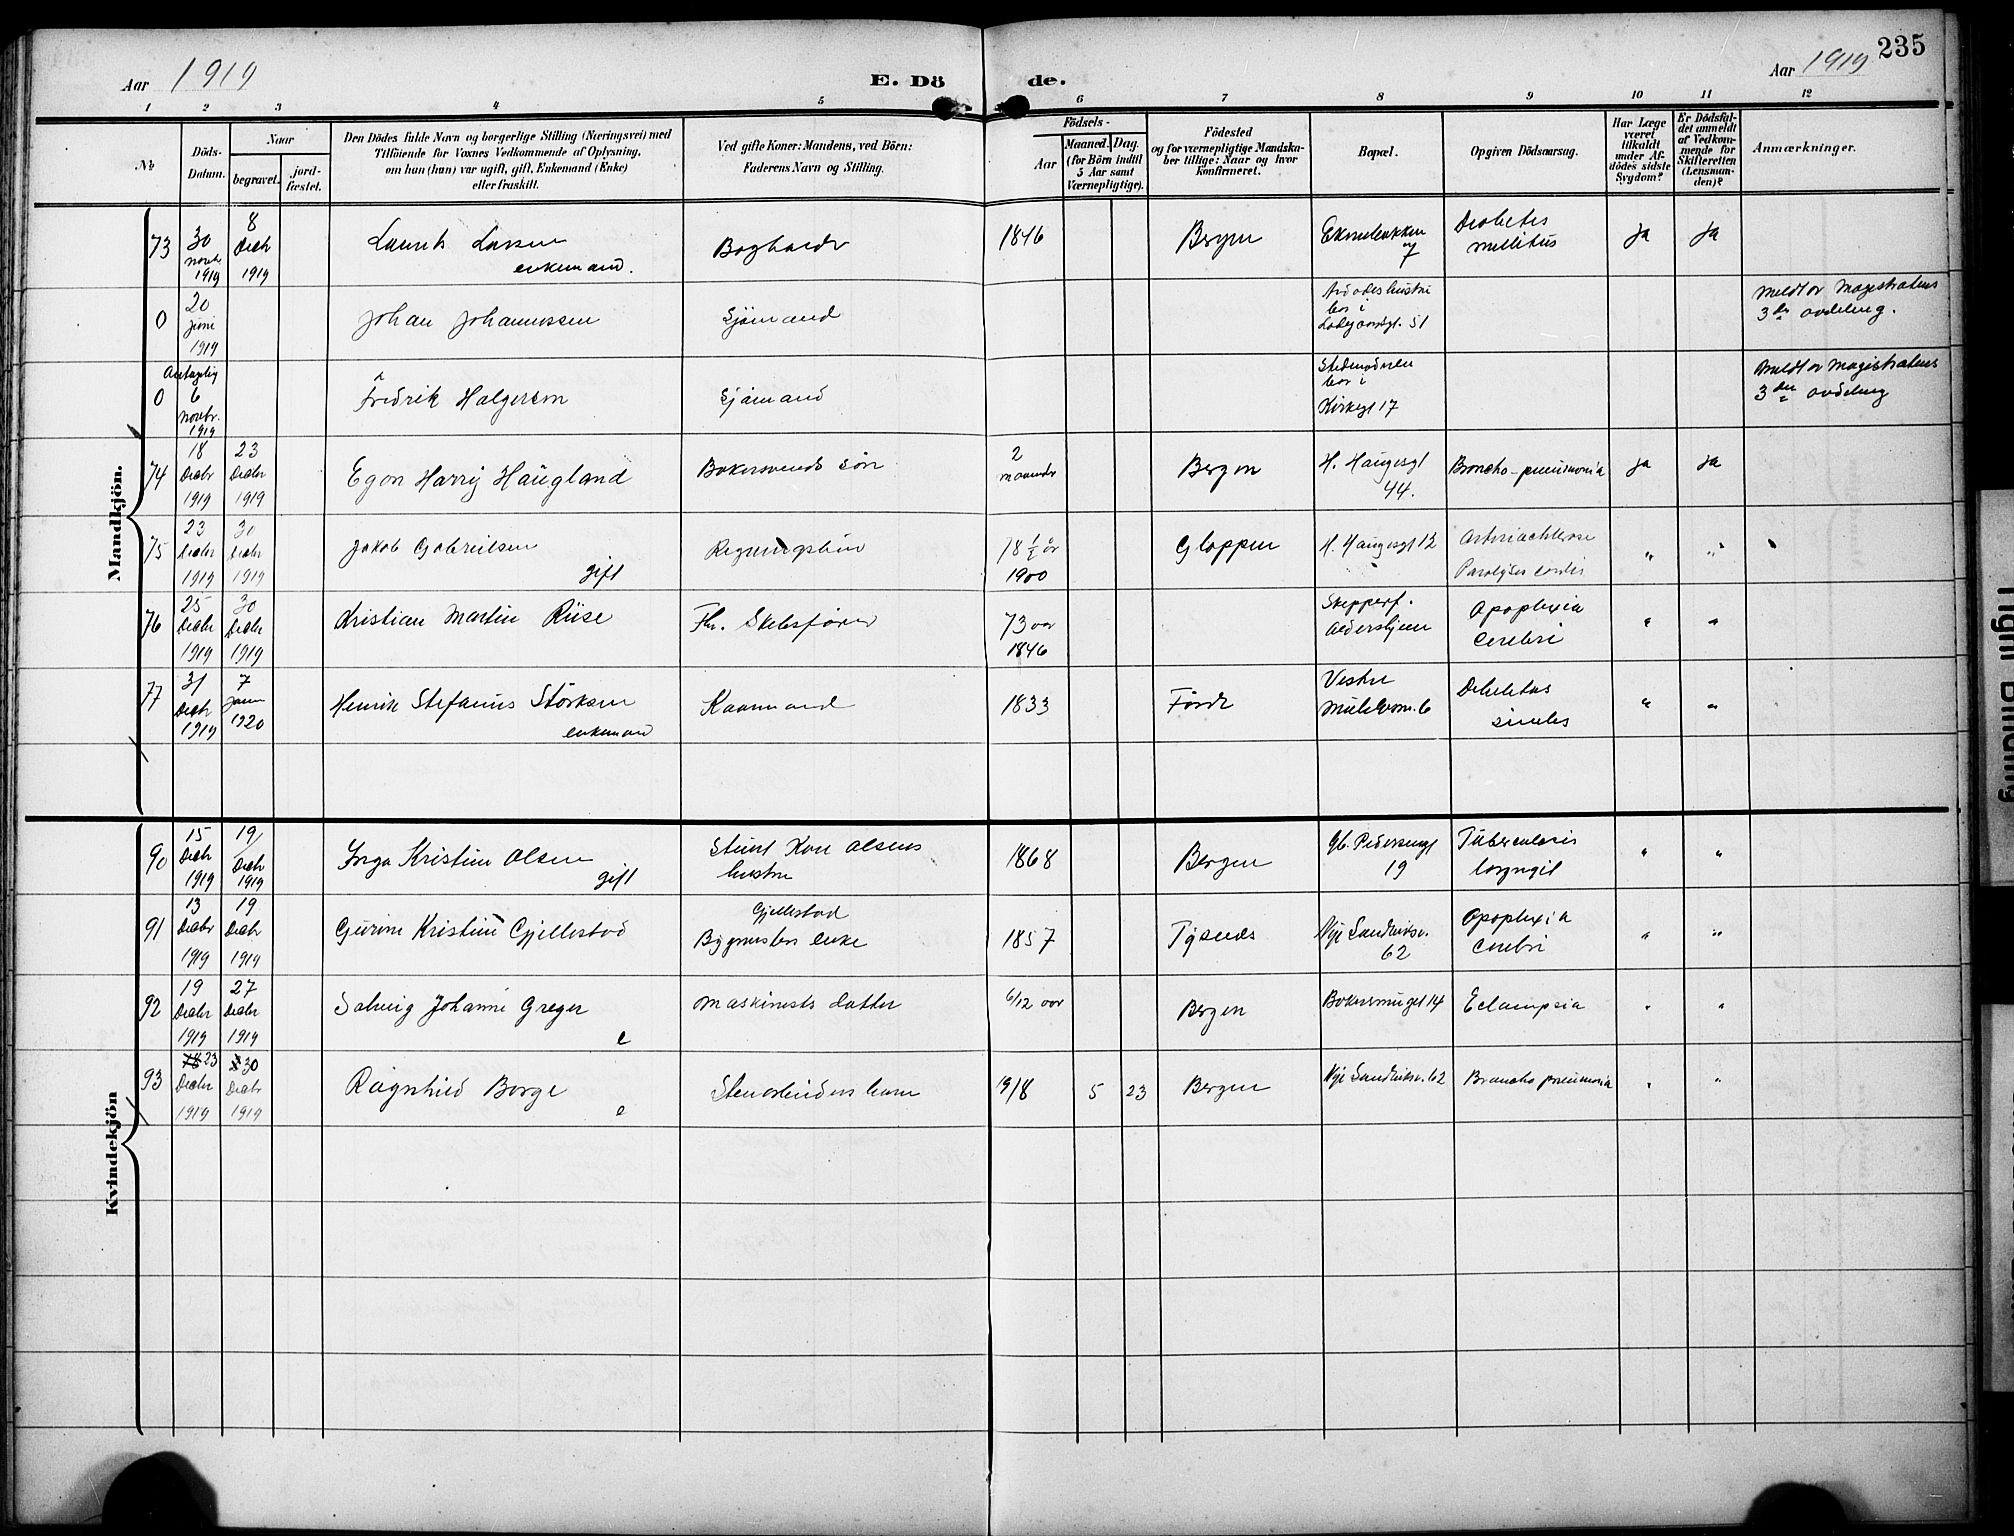 235
Aar 1919
E. Dö de.
Aar 1919
1 2 3 4 5 6 7 8 9 10 11 12
No.
Döds-
Datum.
Naar
begravet.
jord-
fæstet.
Den Dödes fulde Navn og borgerlige Stilling (Næringsvei) med
Tilföiende for Voxnes Vedkommende af Oplysning,
om han (hun) var ugift, gift, Enkemand (Enke)
eller fraskilt.
Ved gifte Koner: Mandens, ved Börn:
Faderens Navn og Stilling.
Födsels-
Aar
Maaned. Dag.
(for Börn indtil
5 Aar samt
Værnepligtige).
Födested
og for værnepligtige Mandska-
ber tillige: Naar og hvor
konfirmeret.
Bopæl.
Opgiven Dödsaarsag.
Har Læge
været
tilkaldt
under Af-
dödes sidste
Sygdom?
Er Dödsfal-
det anmeldt
af Vedkom-
mende for
Skifteretten
(Lensman-
den)?
Anmærkninger.
Mandkjön.
73
30
Novbr
1919
8
Decbr
1919
Laurits Larsen
enkemand.
1846
Bergen
7
Diabetes
mellitus
Ja
Ja
0
20
Juni
1919
Johan Johannessen
Sjömand
Avdødes hustru
bor i
51
Meldt av Magistratens
3die avdeling.
Antagelig
0
6
Novbr.
1919
Fredrik Halgersen
Sjömand
bor i
Kirkegt 17
Meldt av Magistratens
3die avdeling
74
18
Decbr
1919
23
Decbr
1919
Egon Harry Haugland
Bakersvends sön
2
maaneder
Bergen
H. Haugesgt
44.
Broncho-pneumonia
Ja
Ja
75
23
Decbr
1919
30
Decbr
1919
Jakob Gabrielsen
gift
78 1/2 år
1900
Gloppen
H. Haugesgt 12
Paralysis cordis
"
"
76
25
Decbr
1919
30
Decbr
1919
Kristian Martin Riise
Fhv. Skibsförer
73 aar
1846
Skipperf.
Aldershjem
Apoplexia
Cerebri
"
"
77
31
Decbr
1919
7
Janr
1920
Henrik Stefanus Störksen
enkemand
Kaarmand
1833
Förde
Vestre
6
Debilitas
senilis
"
"
Kvindekjön
90
15
Decbr
1919
19
Decbr
1919
Inga Kristine Olsen
gift
Olsens
hustru
1868
Bergen
Gb. Pedersensgt
19
Tuberculosis
laryngis
"
"
91
13
Decbr
1919
19
Decbr
1919
Gurine Kristine Gjellestad
Gjellestad
Bygmesters enke
1857
Tysnes
Nye Sandviksv.
62
Apoplexia
Cerebri
"
"
92
19
Decbr
1919
27
Decbr
1919
Solveig Johanne Greger
e
Maskinists datter
6/12 aar
Bergen
14
Eclampsia
"
"
93
23
Decbr
1919
30
Decbr
1919
Ragnhild Borge
e
Stenarbeiders barn
19/8 5 23
Bergen
Nye Sandviksv. 62
Broncho pneumonia
"
"